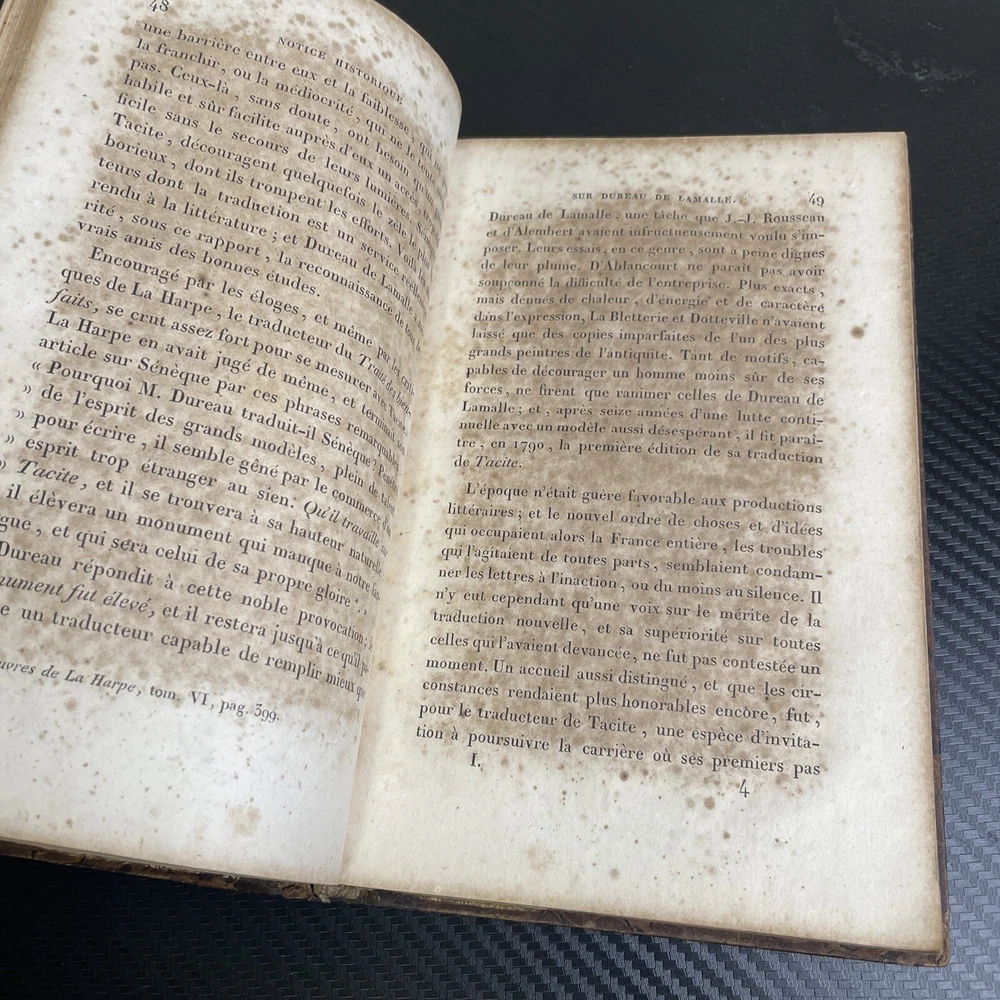 48
NOTICE HISTORIQUE
une barrière entre eux et la faiblesse qui ne peut
la franchir, ou la médiocrité, qui ne le veut
pas. Ceux-là, sans doute, ont besoin qu'un
habile et sûr facilite auprès d'eux un accès,
ficile sans le secours de leurs lumières.
Tacite, découragent quelquefois le zèle le plus
borieux, dont ils trompent les efforts. Voilà les
teurs dont la traduction est un service
rendu à la littérature; et Dureau de Lamalle a
rité, sous ce rapport, la reconnaissance de tous
vrais amis des bonnes études.
Encouragé par les éloges, et même par les criti-
ques de La Harpe, le traducteur du Traité des bien-
faits, se crut assez fort pour se mesurer avec Tacite.
La Harpe en avait jugé de même, et terminait son
article sur Sénèque par ces phrases remarquables
« Pourquoi M. Dureau traduit-il Sénèque?
» de l'esprit des grands modèles, plein de talent
» pour écrire, il semble gêné par le commerce d'un
» esprit trop étranger au sien. Qu'il travaille sur
» Tacite, et il se trouvera à sa hauteur naturelle
il élèvera un monument qui manque à notre lan-
gue, et qui sera celui de sa propre gloire. »
Dureau répondit à cette noble provocation; le
nument fut élevé, et il restera jusqu'à ce qu'il
un traducteur capable de remplir mieux que
uvres de La Harpe, tom. VI, pag. 399.
SUR DUREAU DE LAMALLE. 49
Dureau de Lamalle, une tâche que J.-J. Rousseau
et d'Alembert avaient infructueusement voulu s'im-
poser. Leurs essais, en ce genre, sont à peine dignes
de leur plume. D'Ablancourt ne paraît pas avoir
soupçonné la difficulté de l'entreprise. Plus exacts,
mais dénués de chaleur, d'énergie et de caractère
dans l'expression, La Bletterie et Dotteville n'avaient
laissé que des copies imparfaites de l'un des plus
grands peintres de l'antiquité. Tant de motifs, ca-
pables de décourager un homme moins sûr de ses
forces, ne firent que ranimer celles de Dureau de
Lamalle; et, après seize années d'une lutte conti-
nuelle avec un modèle aussi désespérant, il fit paraî-
tre, en 1790, la première édition de sa traduction
de Tacite.
L'époque n'était guère favorable aux productions
littéraires; et le nouvel ordre de choses et d'idées
qui occupaient alors la France entière, les troubles
qui l'agitaient de toutes parts, semblaient condam-
ner les lettres à l'inaction, ou du moins au silence. Il
n'y eut cependant qu'une voix sur le mérite de la
traduction nouvelle, et sa supériorité sur toutes
celles qui l'avaient devancée, ne fut pas contestée un
moment. Un accueil aussi distingué, et que les cir-
constances rendaient plus honorables encore, fut,
pour le traducteur de Tacite, une espèce d'invita-
tion à poursuivre la carrière où ses premiers pas
I.
4